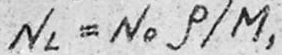 N_L = N_0 ρ/M,